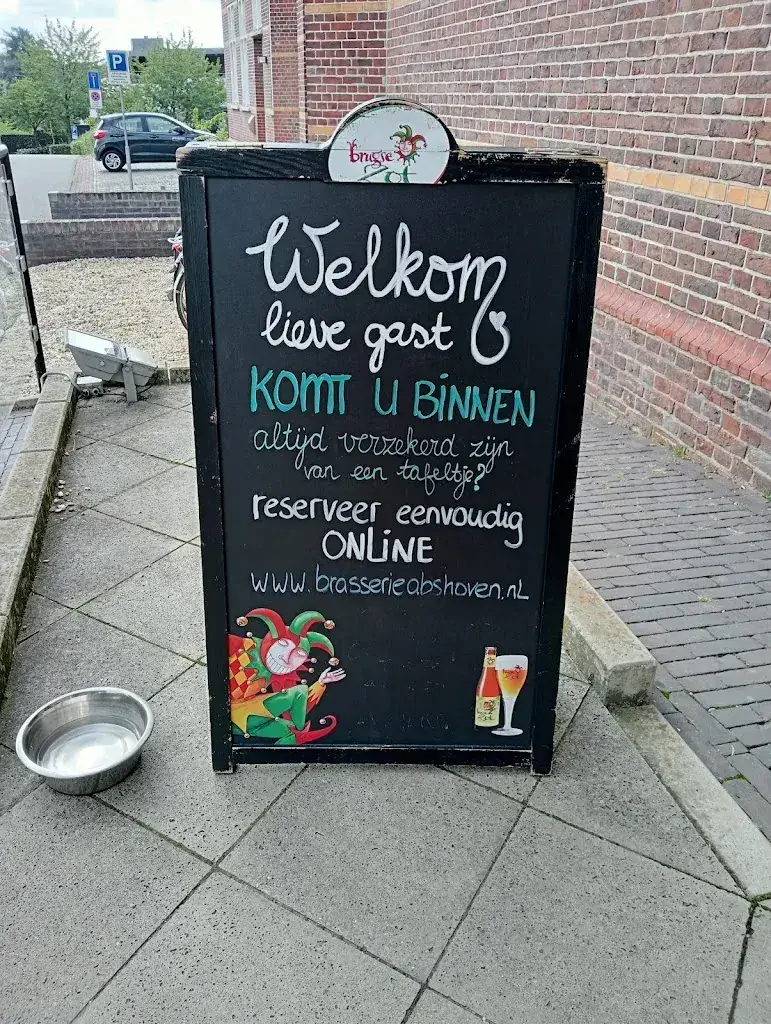 P
brugse
Welkom
lieve gast
KOMT U BINNEN
altijd verzekerd zijn
van een tafeltje?
reserveer eenvoudig
ONLINE
www.brasserieabshoven.nl